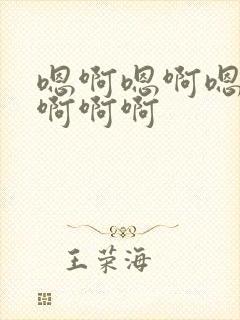 嗯啊嗯啊嗯
啊啊啊
王荣海